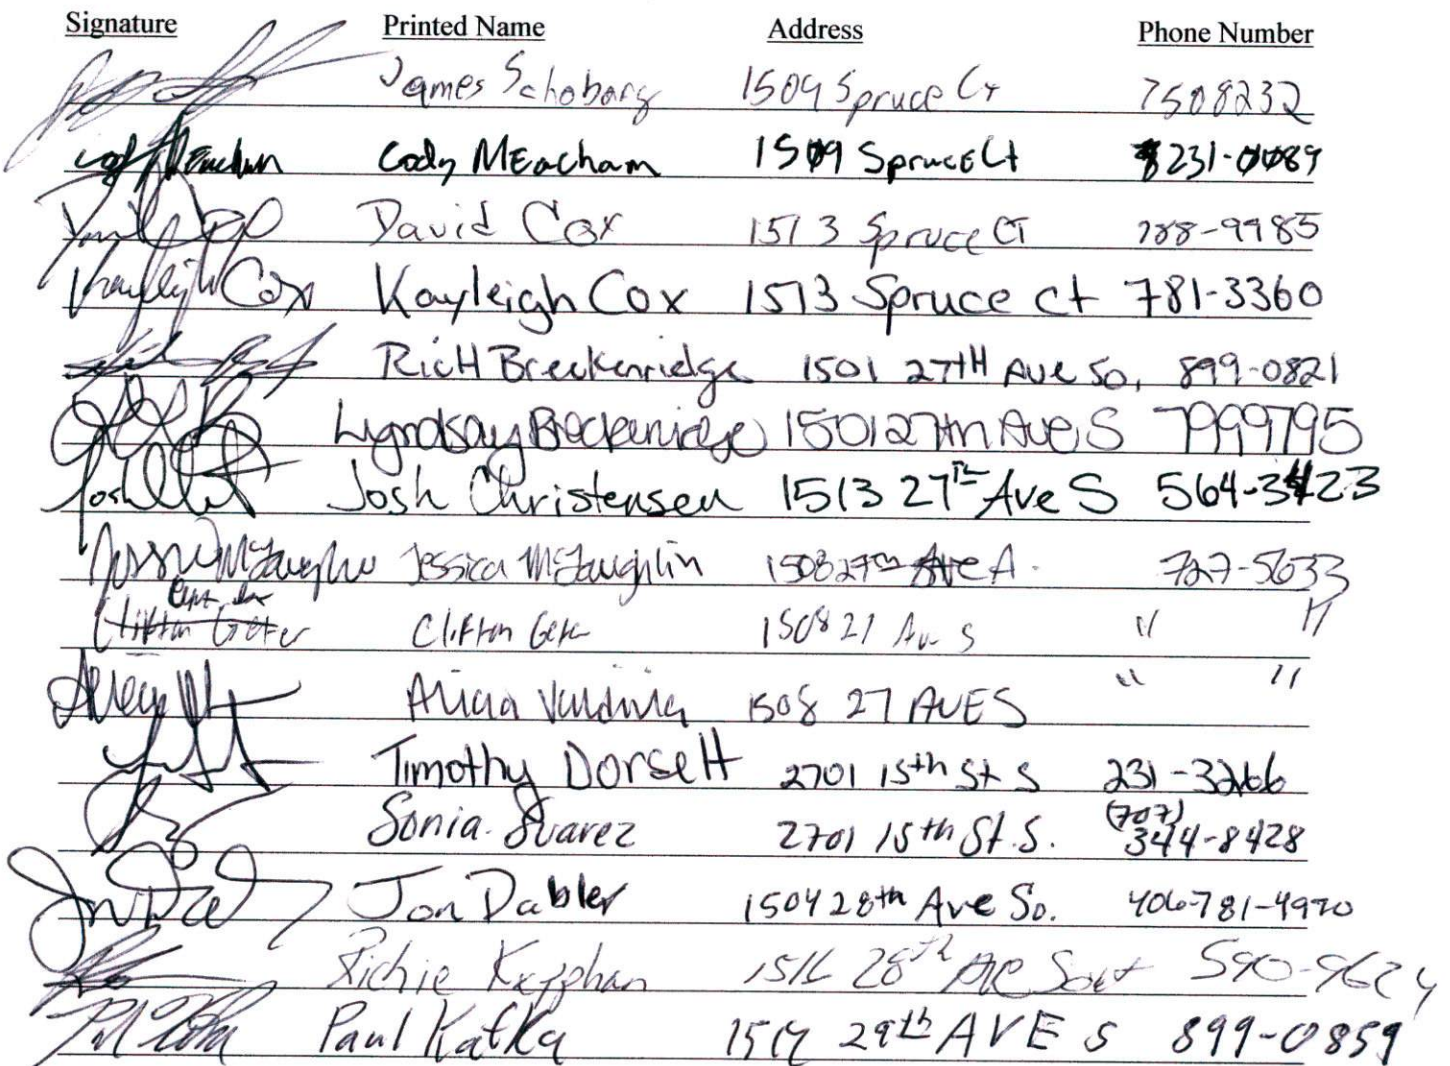 Signature Printed Name Address Phone Number
James Schobarg 1509 Spruce Ct 7508232
Cody MEacham 1509 Spruce Ct 231-0089
David Cox 1513 Spruce CT 788-9985
Kayleigh Cox Kayleigh Cox 1513 Spruce ct 781-3360
RicH Breckenridge 1501 27tH Ave So, 899-0821
Lyndsay Breckenridge 1501 27th Ave S 7999795
Josh Josh Christensen 1513 27th Ave S 564-3423
Jessica McLaughlin 1508 27th Ave 727-5633
Clifton Clifton 1508 27 Av S " "
Alicia 1508 27 AVE S " "
Timothy Dorsett 2701 15th St S 231-3266
Sonia Suarez 2701 15th St. S. (707) 344-8428
Jon Dabler 1504 28th Ave So. 406-781-4970
Richie 1516 28th 590-9624
Paul Kafka 29th AVE S 899-0859